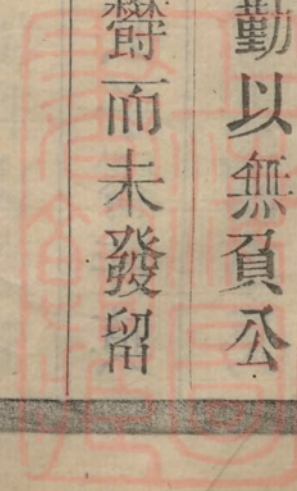 勤以無負公
欝而未發留